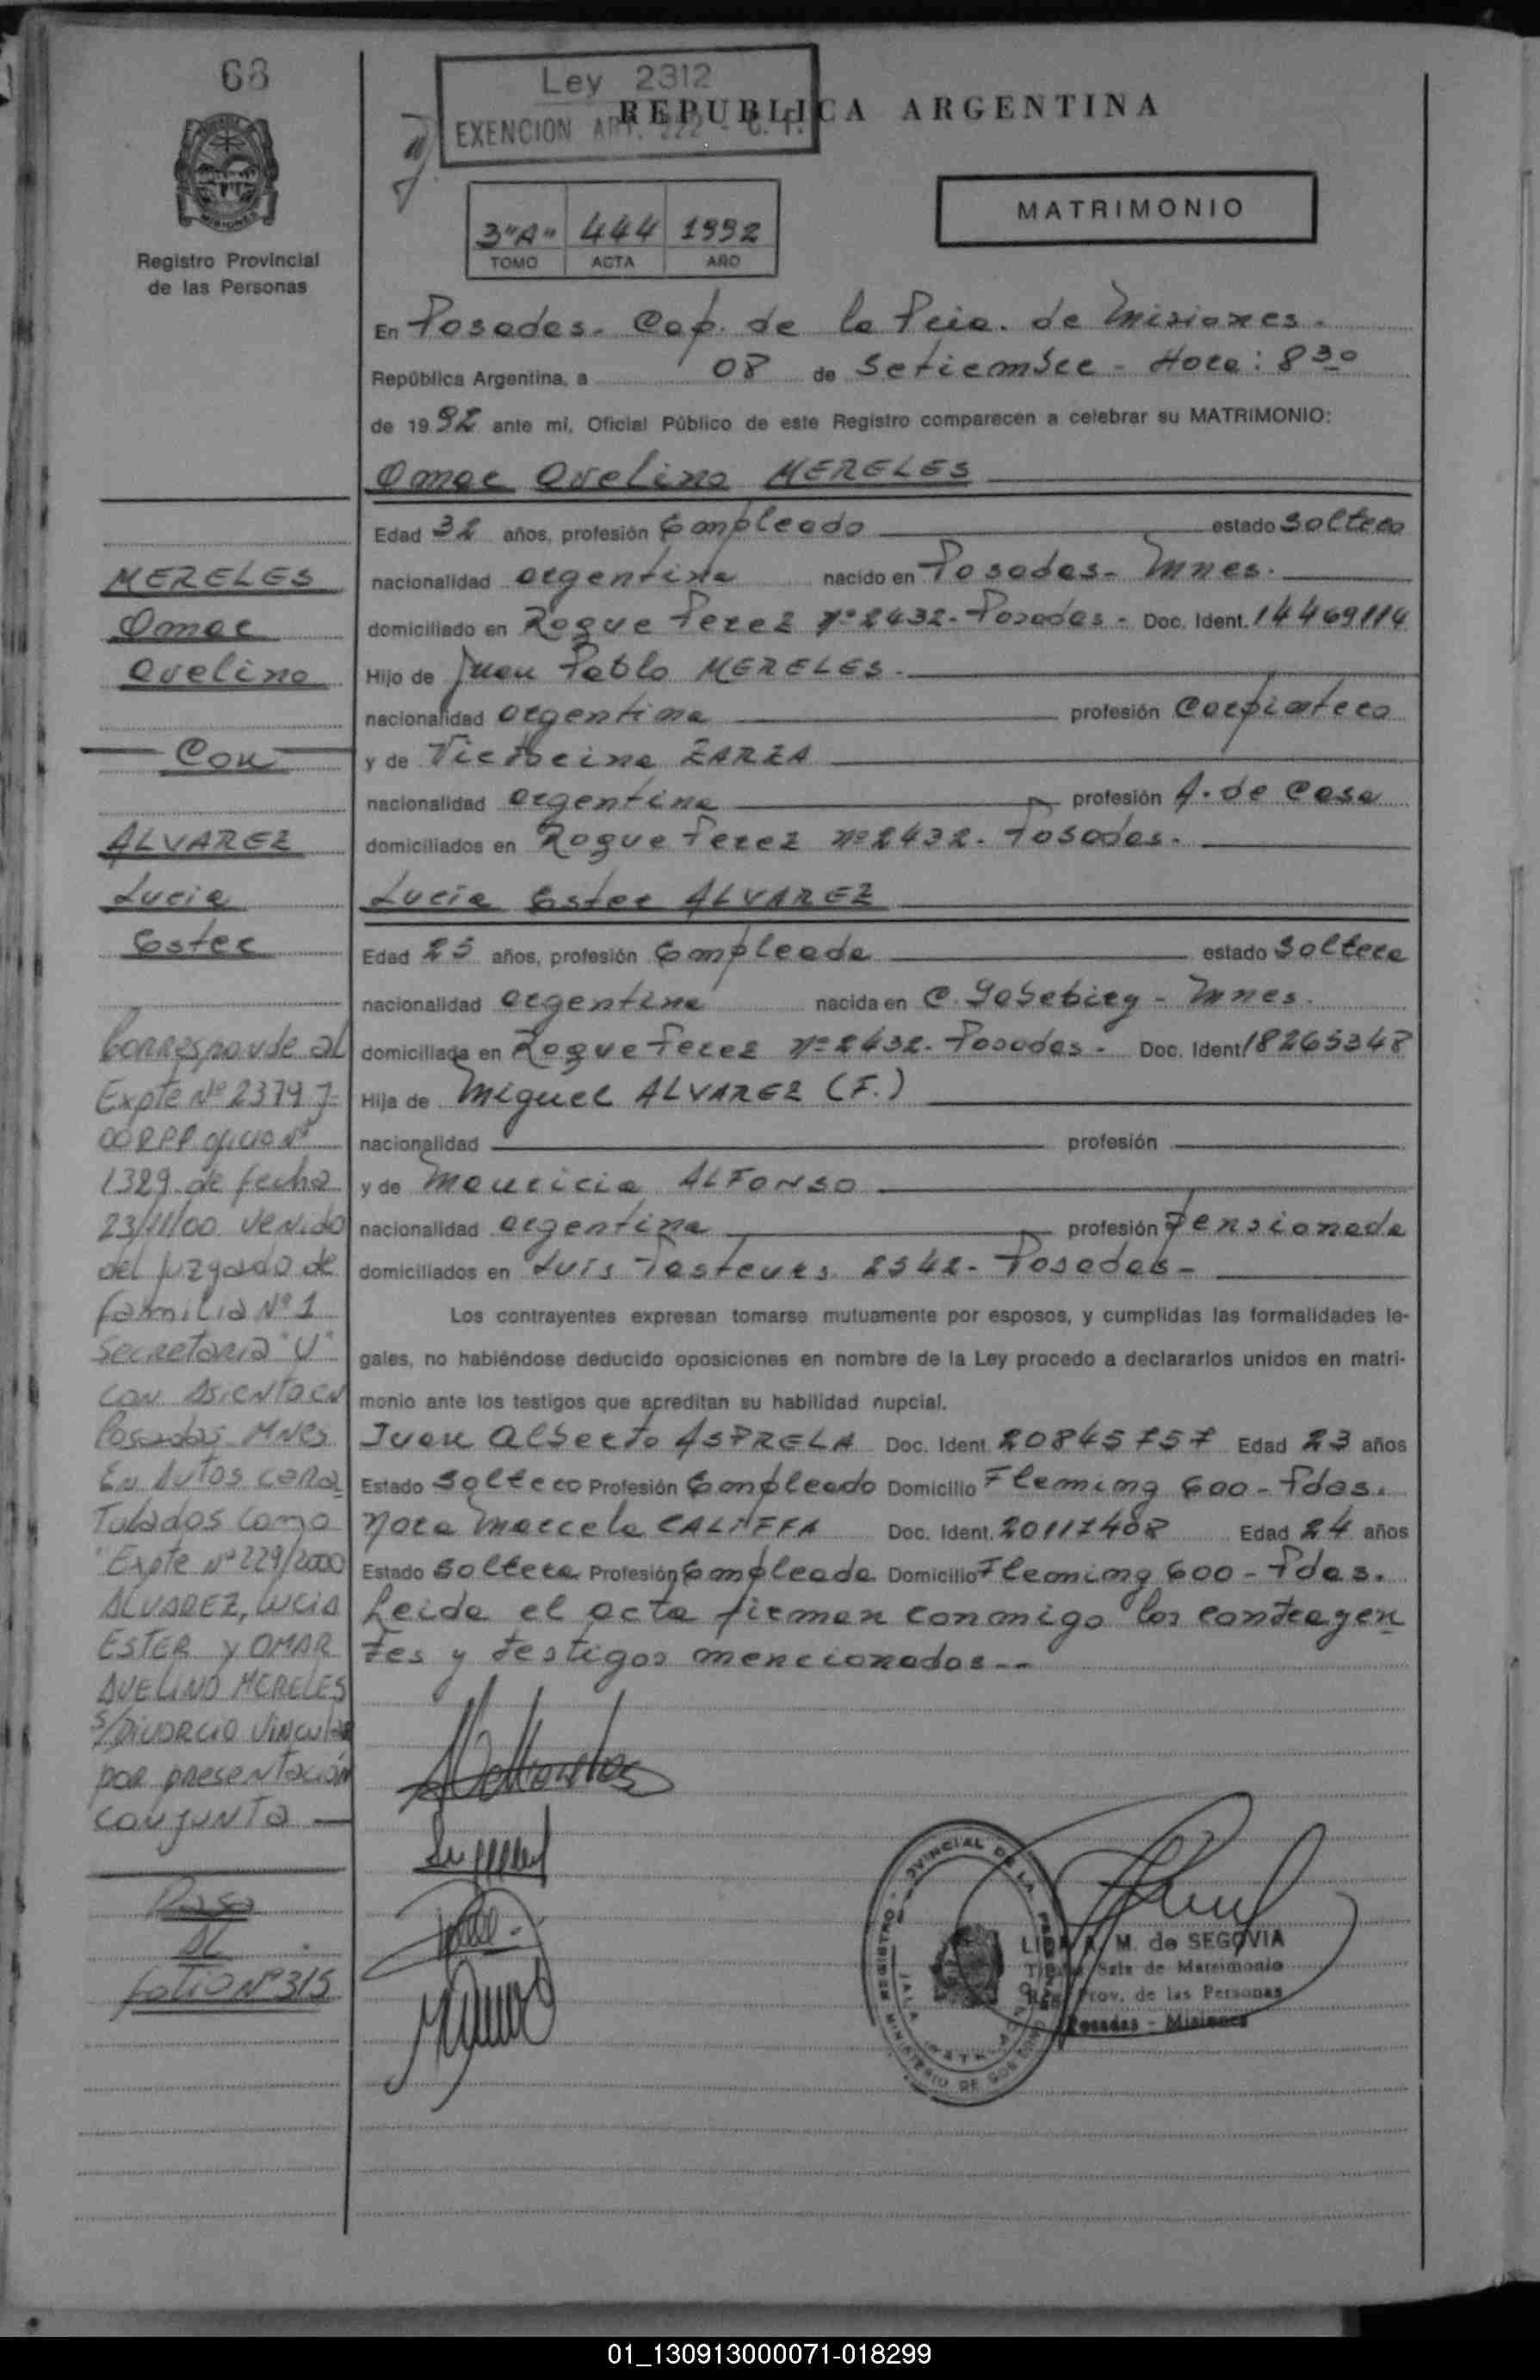 68
Ley 2312
EXENCION ART. 222 - C. F.
REPUBLICA ARGENTINA
MATRIMONIO
3"A" 444 1992
TOMO ACTA AÑO
Registro Provincial
de las Personas
En Posadas. Cap. de la Pcia. de Misiones.
República Argentina, a 08 de Setiembre - Hora: 8 30
de 1992 ante mí, Oficial Público de este Registro comparecen a celebrar su MATRIMONIO:
Omar Avelino MERELES
Edad 32 años, profesión Empleado estado Soltero
nacionalidad argentina nacido en Posadas - Mnes.
domiciliado en Roque Perez Nº 2432 - Posadas - Doc. Ident. 14469114
Hijo de Juan Pablo MERELES.
nacionalidad argentina profesión Carpintero
y de Victorina ZARZA
nacionalidad argentina profesión A. de Casa
domiciliados en Roque Perez Nº 2432 - Posadas.
Lucia Ester ALVAREZ
Edad 25 años, profesión Empleada estado Soltera
nacionalidad argentina nacida en C. - Mnes.
domiciliada en Roque Perez Nº 2432 - Posadas - Doc. Ident 18265348
Hija de Miguel ALVAREZ (F.)
nacionalidad profesión
y de Mauricia ALFONSO
nacionalidad argentina profesión Pensionada
domiciliados en Luis Pasteur 2542 - Posadas -
Los contrayentes expresan tomarse mutuamente por esposos, y cumplidas las formalidades le-
gales, no habiéndose deducido oposiciones en nombre de la Ley procedo a declararlos unidos en matri-
monio ante los testigos que acreditan su habilidad nupcial.
Juan Alberto ASPRELA Doc. Ident. 20845757 Edad 23 años
Estado Soltero Profesión Empleado Domicilio Fleming 600 - Pdas.
Nora Marcela Doc. Ident. 20117408 Edad 24 años
Estado Soltera Profesión Empleada Domicilio Fleming 600 - Pdas.
Leida el acta firman conmigo los contrayen
tes y testigos mencionados --
MERELES
Omar
Avelino
Con
ALVAREZ
Lucia
Ester
Corresponde al
Expte Nº 2379 J-
00 RPP oficio Nº
1389 de fecha
23/11/00 venido
del juzgado de
familia Nº 1
Secretaria "U"
con asiento en
Posadas MNES
En Autos cara
tulados como
"Expte Nº 229/2000
ALVAREZ, LUCIA
ESTER y OMAR
AVELINO MERELES
S/Divorcio Vincular
por presentación
conjunta
Pasa
AL
folio Nº 315
M. de SEGOVIA
Sala de Matrimonio
Reg. Prov. de las Personas
Posadas - Misiones
01_130913000071-018299